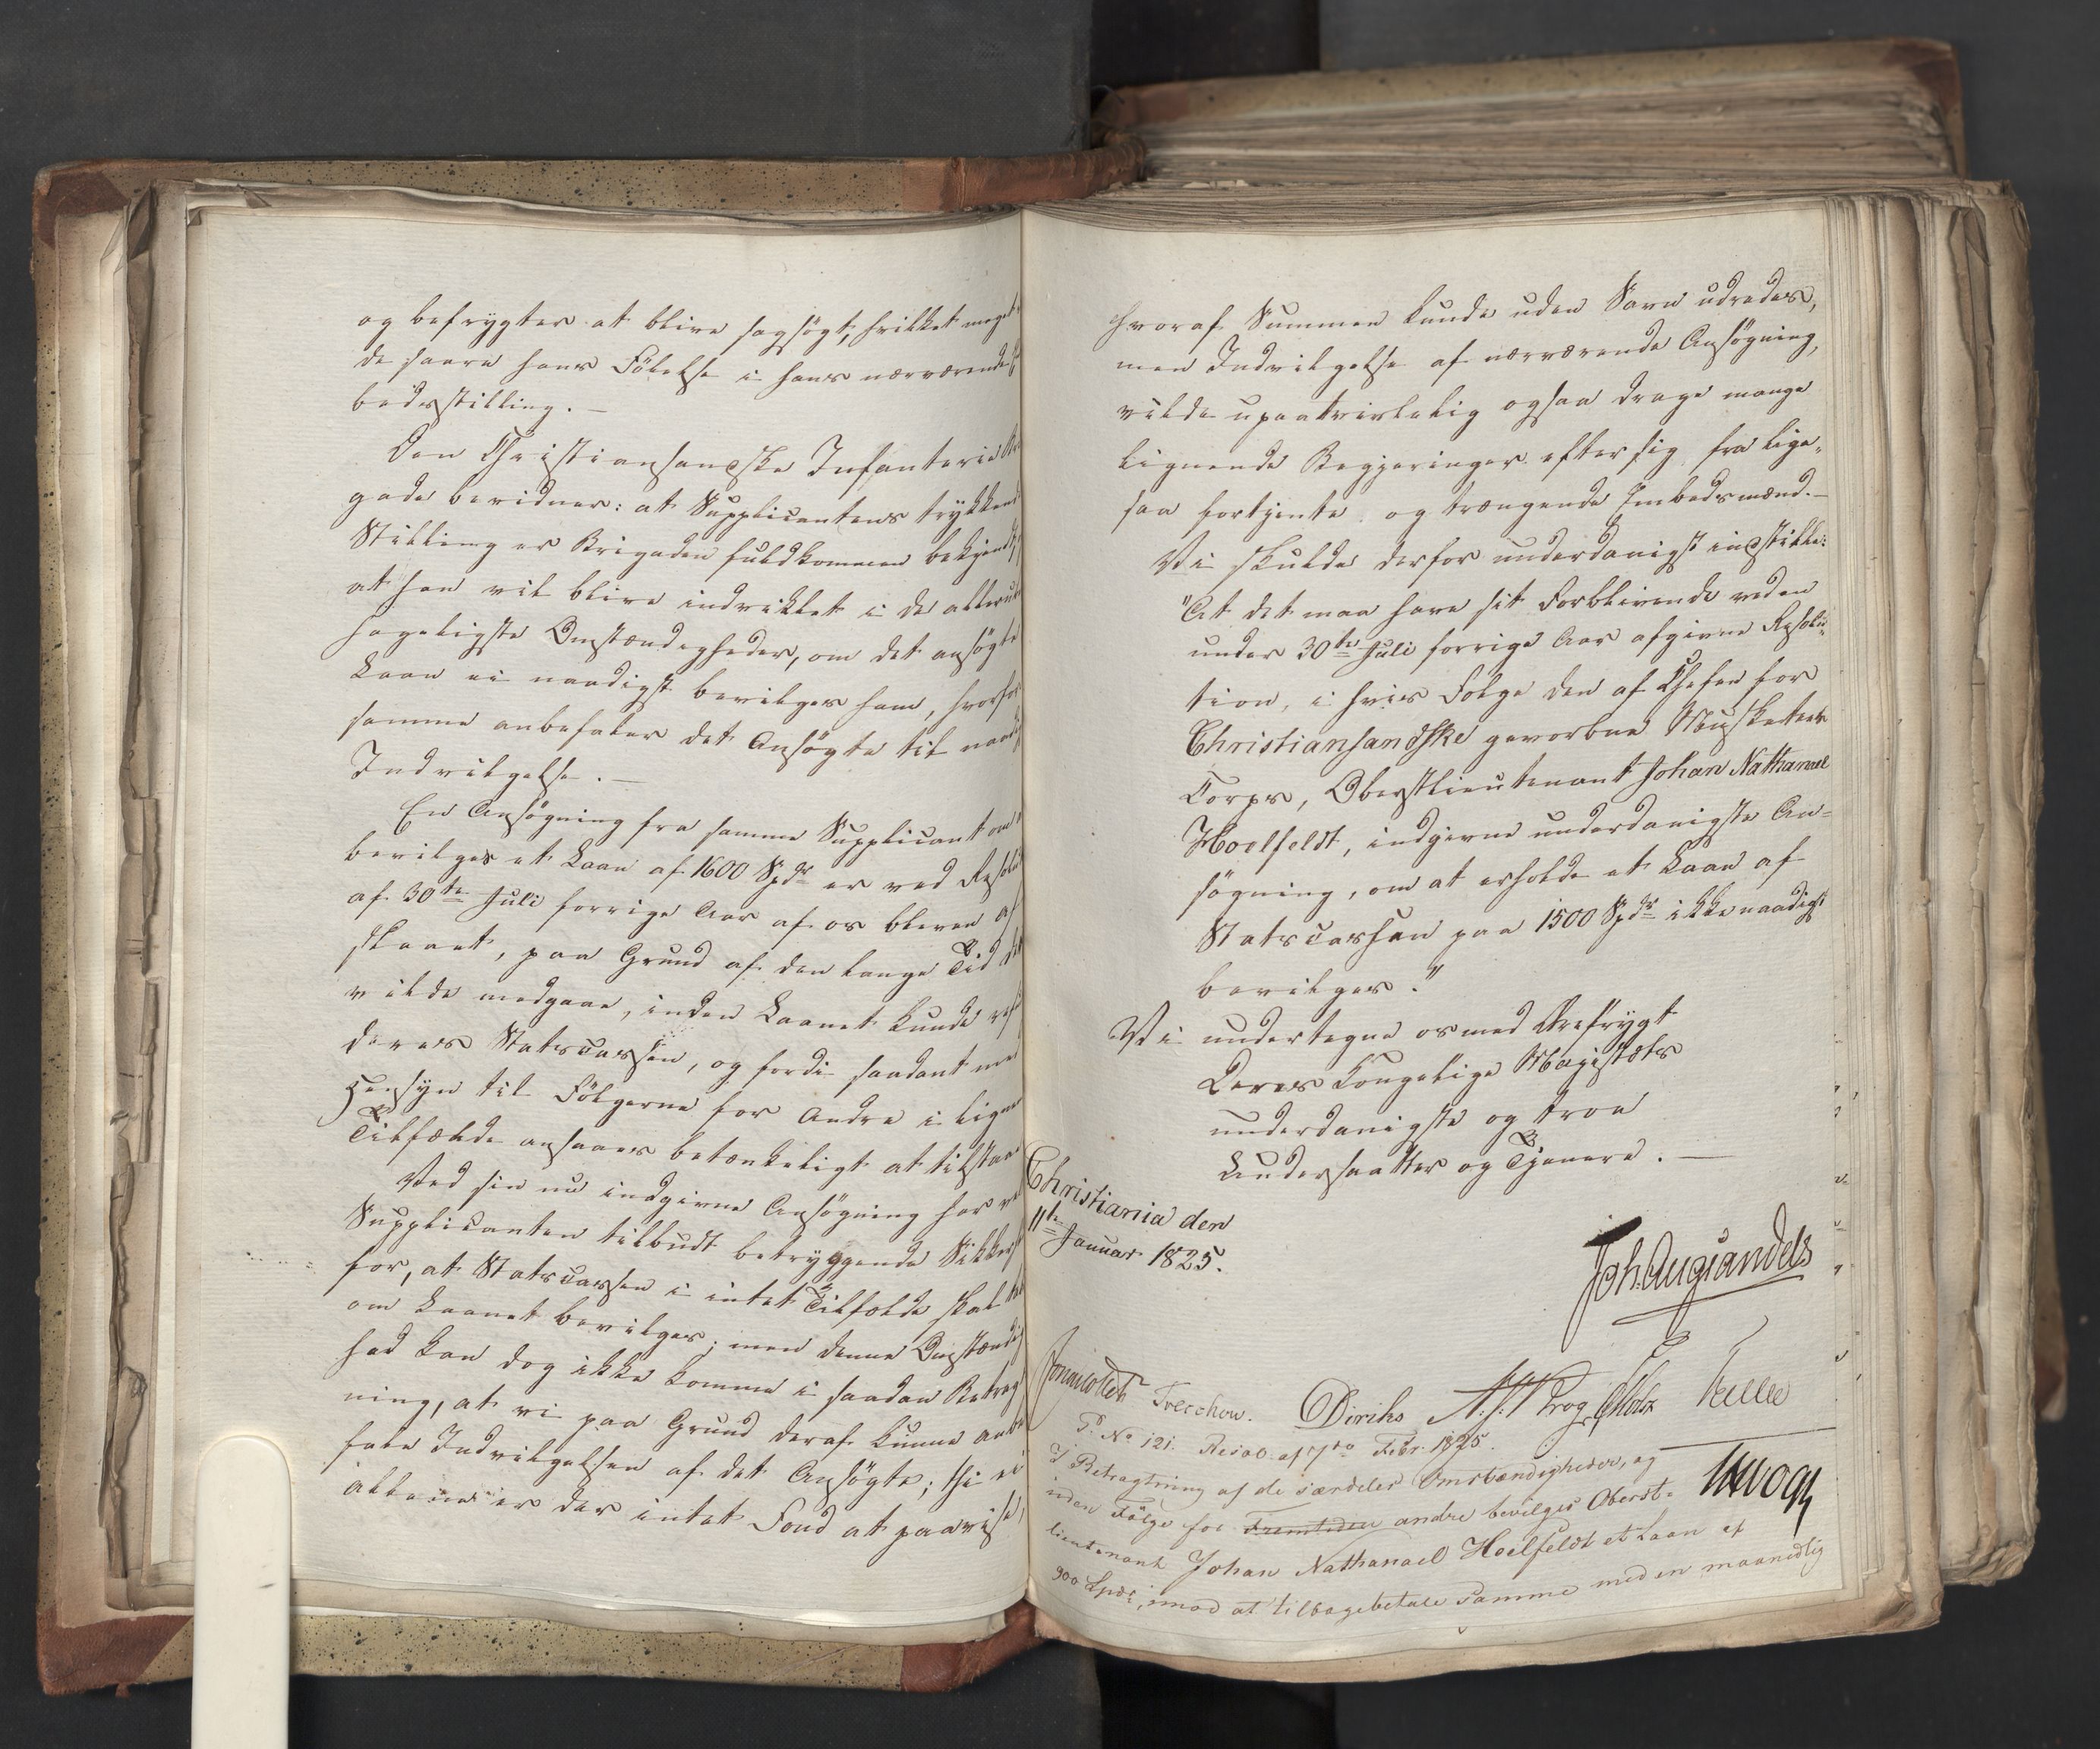 og befrygter at blive sagsögt, hvilket meget
de saare hans Fölelse i hans nærværende
bedsstilling. —
Den Christiansandske Infanterie
gade bevidner: at Supplicantens trykkende
Stilling er Brigaden fuldkommen bekjendt,
at han vil blive indviklet i de allerube
hageligste Omstændigheder, om det ansögte
Laan ei naadigst bevilges ham, hvorfor
samme anbefaler det Ansögte til naadig
Indvilgelse. —
En Ansögning fra samme Supplicant om
bevilges et Laan af 1600 Spdr er ved Resolu
af 30te Juli forrige Aar af os bleven af
slaaet, paa Grund af den lange Tid
vilde medgaae, inden Laanet kunde
deres Statscassen, og fordi saadant med
Hensyn til Fölgerne for Andre i lignen
Tilfælde ansaaes betænkeligt at tilstaae
Ved sin nu indgivne Ansögning har
Supplicanten tilbudt betryggende Sikker
for, at Statscassen i intet Tilfælde skal
om Laanet bevilges; men denne Omstændig
hed kan dog ikke komme i saadan Betrag
ning, at vi paa Grund deraf kunne anbe
fale Indvilgelsen af det Ansögte; thi ei
allene er der intet Fond at paavise,
hvoraf Summen kunde uden Savn udredes,
men Indvilgelse af nærværende Ansögning,
vilde upaatvivlelig ogsaa drage mange
lignende Begjæringer efter sig fra lige-
saa fortjente og trængende Embedsmænd. —
Vi skulde derfor underdanigst indstille:
"At det maa have sit Forblivende ved en
under 30te Juli forrige Aar afgivne Resolu-
tion, i hvis Fölge den af Chefen for
Christiansandske gevorbne Musketeer
Corps, Oberstlieutenant Johan Nathanael
Hoelfeldt, indgivne underdanigste An-
sögning, om at erholde et Laan af
Statscassen paa 1500 Spdr ikke naadigst
bevilges."
Vi undertegne os med Ærefrygt
Deres Kongelige Majestæts
underdanigste og troe
Undersaatter og Tjenere. —
Christiania den
11te Januar 1825.
Joh. Aug Sandels
Jonas Collett Treschow. Diriks Motz
P. No 121. Resol. af 7de Febr. 1825.
I Betragtning af de særdeles Omstændigheder, og
uden Fölge for Fremtiden andre bevilges Oberst-
lieutenant Johan Nathanael Hoelfeldt et Laan af
900 Spdr, imod at tilbagebetale samme med en maanedlig